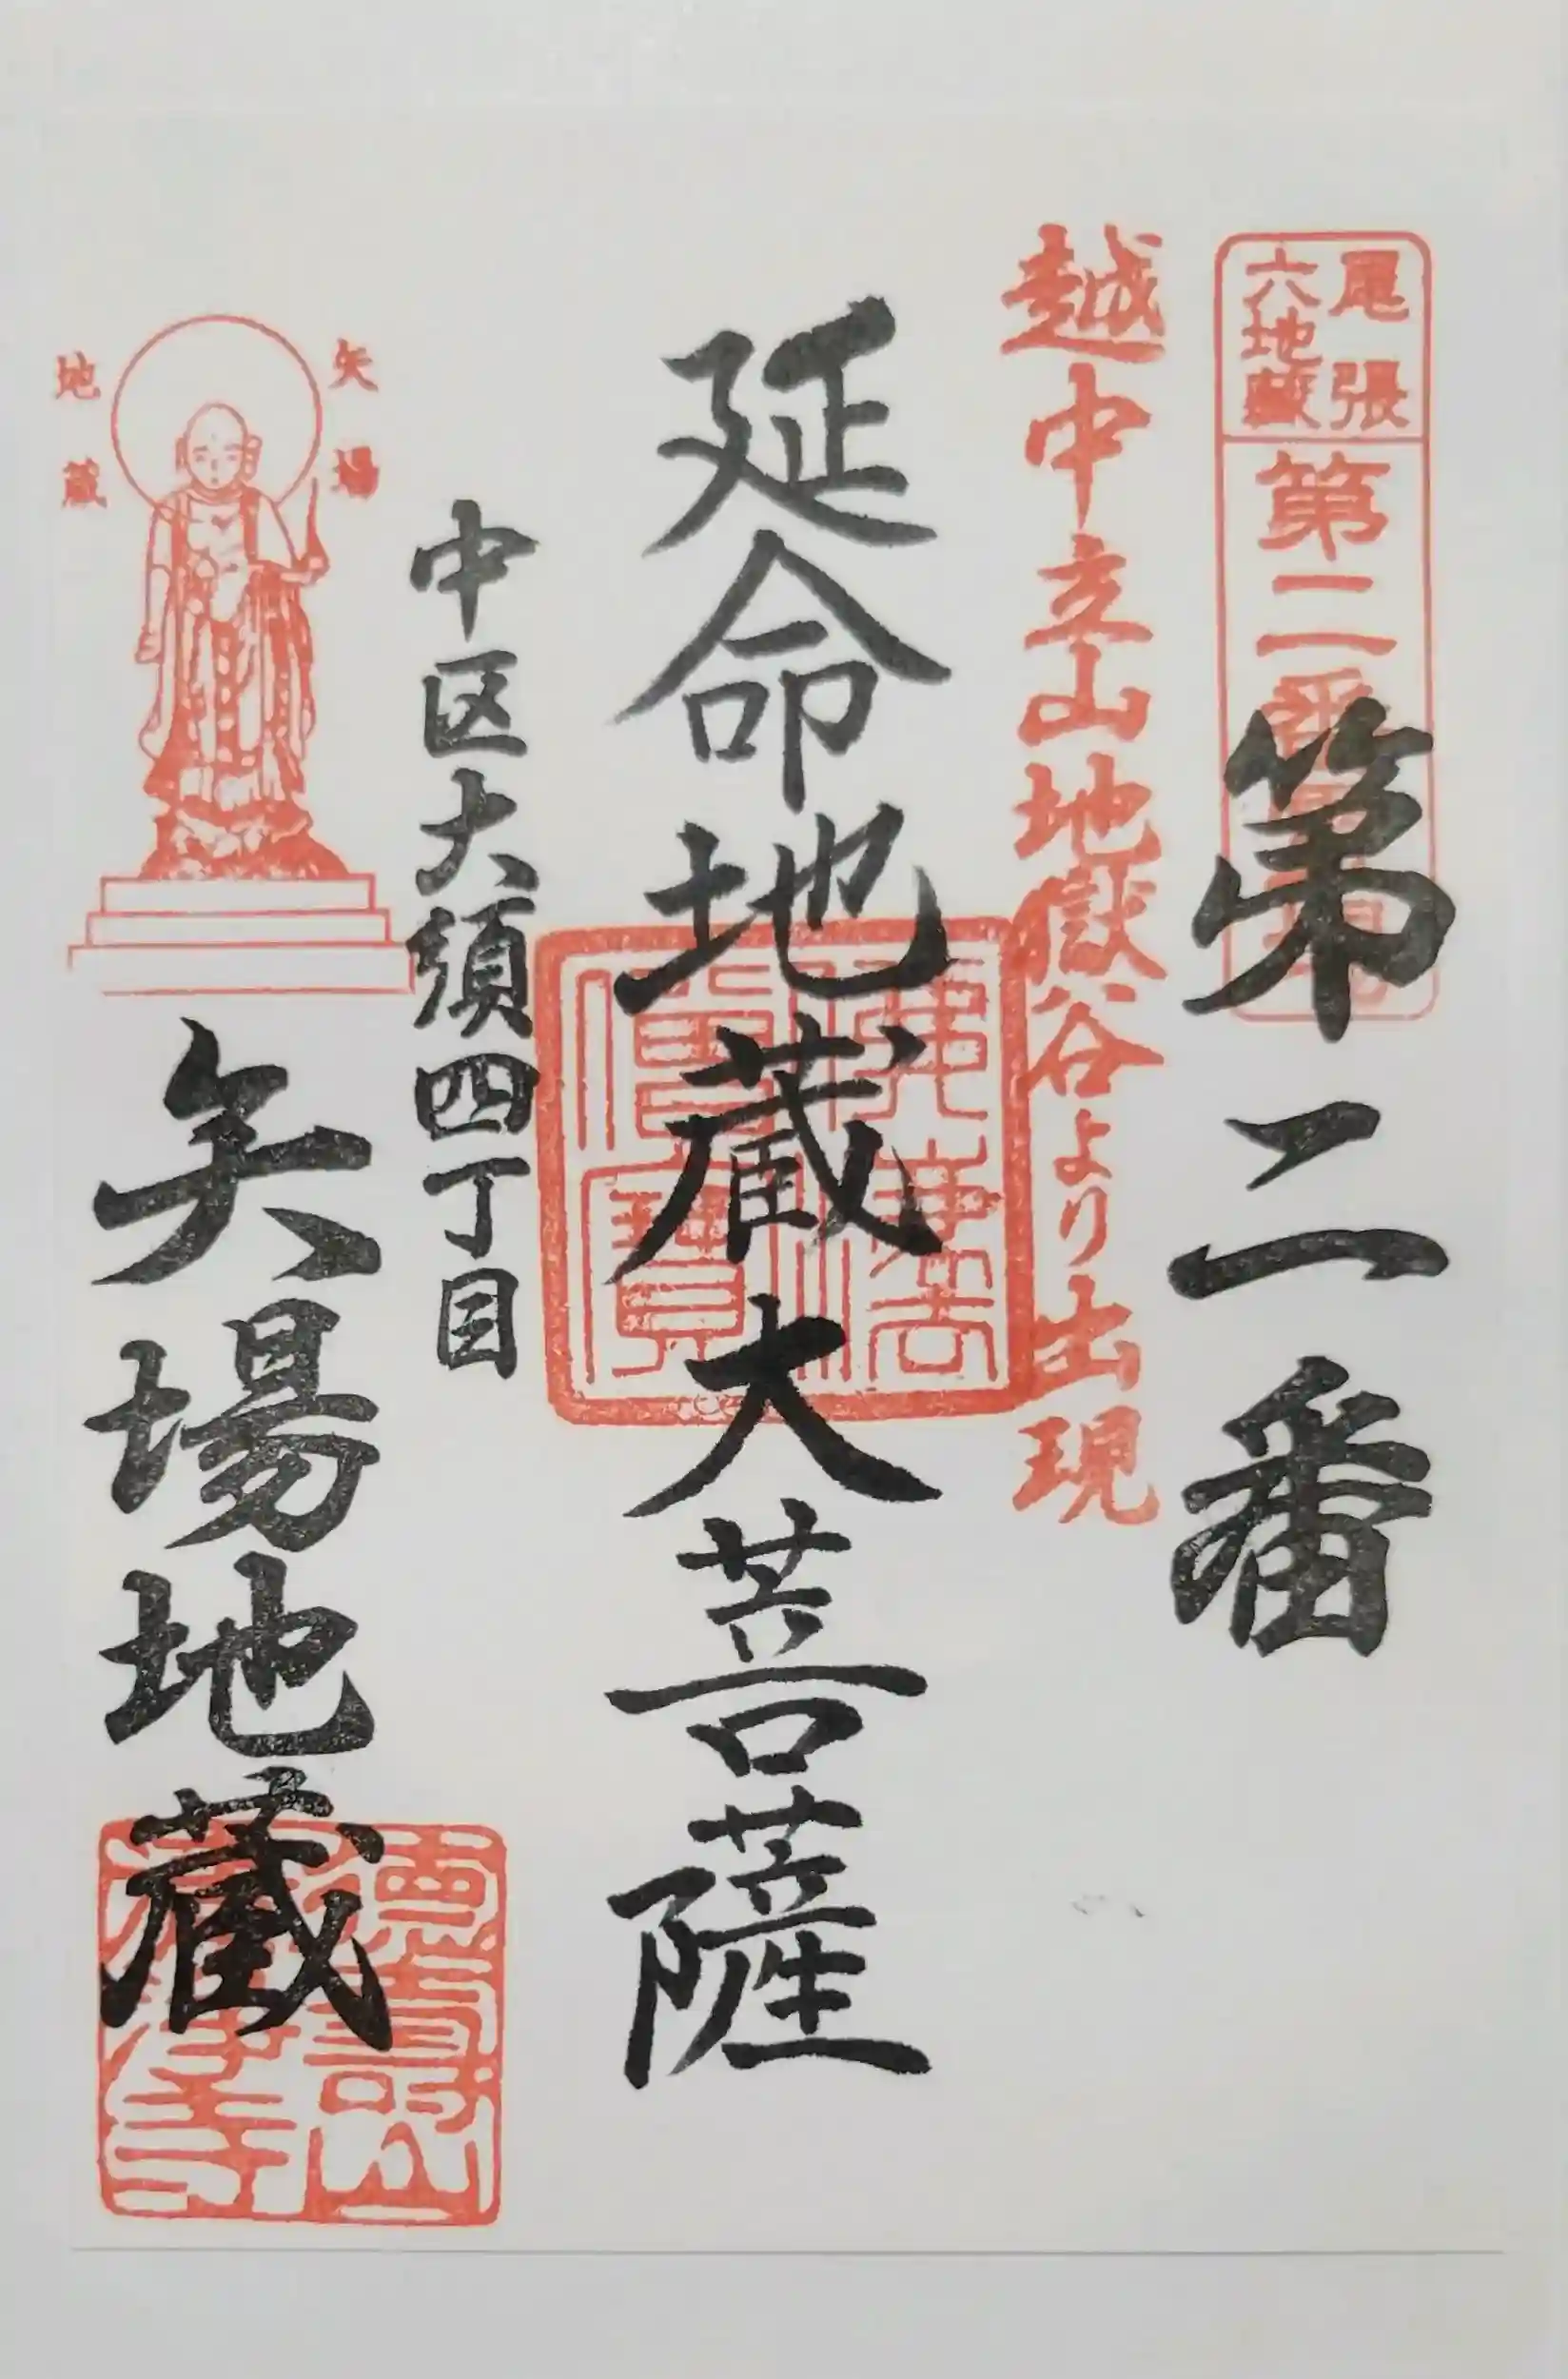 尾張
六地蔵
第二番
第二番
越中立山地獄谷より出現
延命地蔵大菩薩
佛法僧寶
中区大須四丁目
矢場
地蔵
矢場地蔵